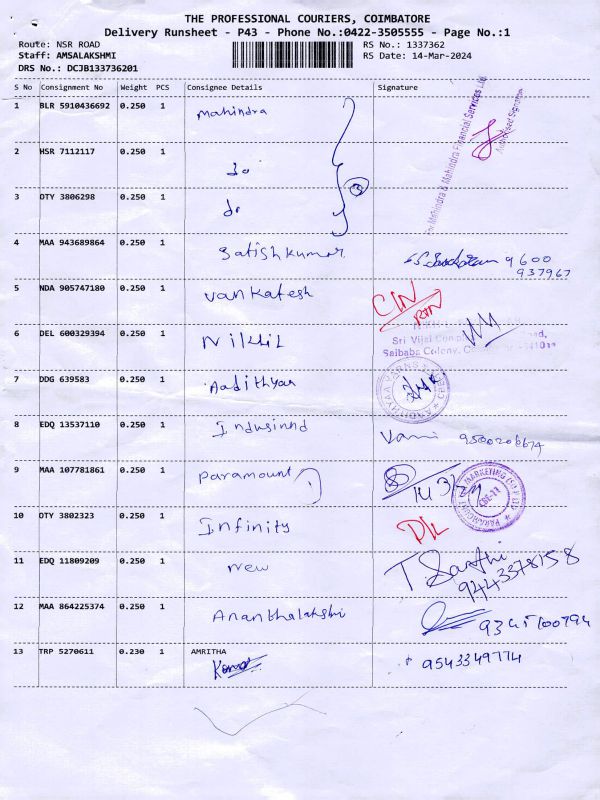 THE PROFESSIONAL COURIERS, COIMBATORE
Delivery Runsheet - P43 - Phone No.:0422-3505555 - Page No.:1
Route: NSR ROAD
RS No.: 1337362
Staff: AMSALAKSHMI
RS Date: 14-Mar-2024
DRS No.: DCJB133736201
S No Consignment No Weight PCS Consignee Details Signature
1 BLR 5910436692 0.250 1 Mahindra
For Mahindra & Mahindra Financial Services Ltd.
Authorised Signatory
2 HSR 7112117 0.250 1 do
3
3 OTY 3806298 0.250 1 do
4 MAA 943689864 0.250 1 Satishkumar 9600
937967
5 NDA 905747180 0.250 1 Vankatesh
6 DEL 600329394 0.250 1 Nikhil
Sri Vijai
Saibaba Colony,
7 DDG 639583 0.250 1 Aadithyan
8 EDQ 13537110 0.250 1 Indusinnd Vani 9500206674
9 MAA 107781861 0.250 1 Paramount
10 OTY 3802323 0.250 1 Infinity D/L
11 EDQ 11809209 0.250 1 new T. Santhi
9443378158
12 MAA 864225374 0.250 1 Ananthalakshmi 9345100794
13 TRP 5270611 0.230 1 AMRITHA
9543349774